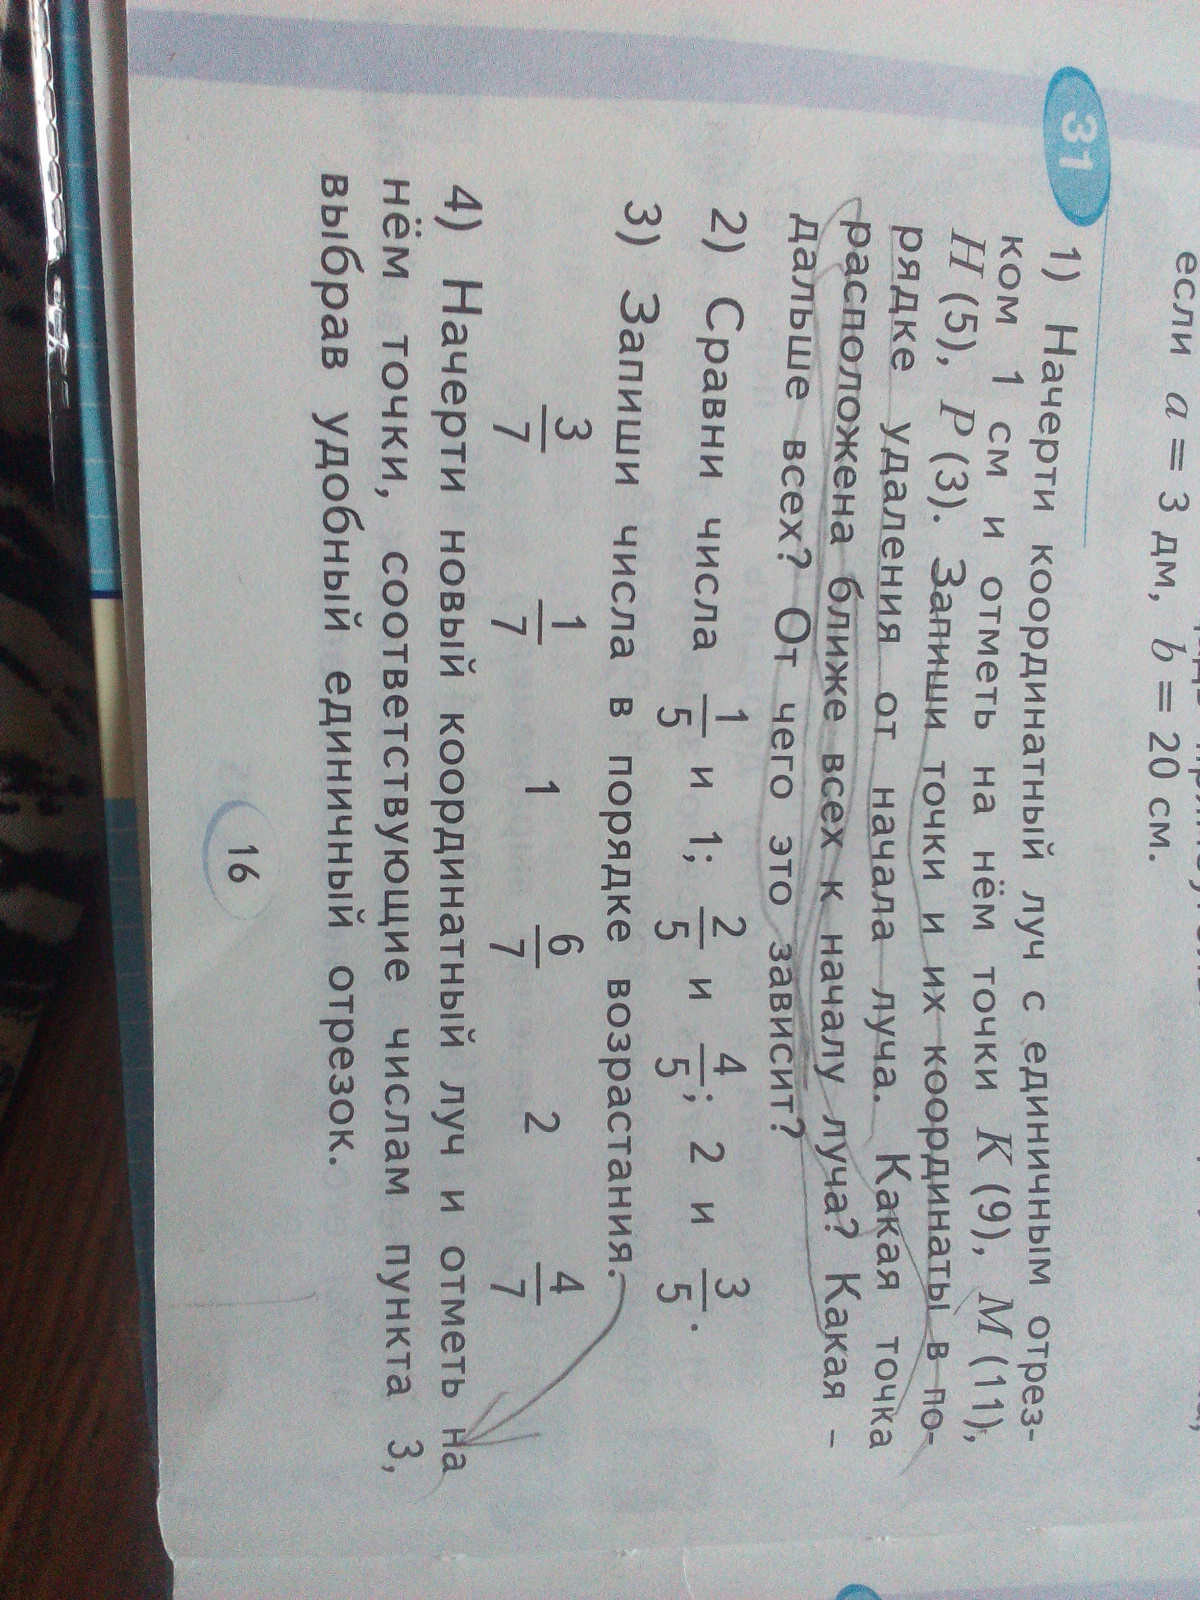 если a = 3 дм, b = 20 см.
31
1) Начерти координатный луч с единичным отрез-
ком 1 см и отметь на нём точки K (9), M (11),
H (5), P (3). Запиши точки и их координаты в по-
рядке удаления от начала луча. Какая точка
расположена ближе всех к началу луча? Какая –
дальше всех? От чего это зависит?
2) Сравни числа 1/5 и 1; 2/5 и 4/5; 2 и 3/5.
3) Запиши числа в порядке возрастания.
3/7 1/7 1 6/7 2 4/7
4) Начерти новый координатный луч и отметь на
нём точки, соответствующие числам пункта 3,
выбрав удобный единичный отрезок.
16